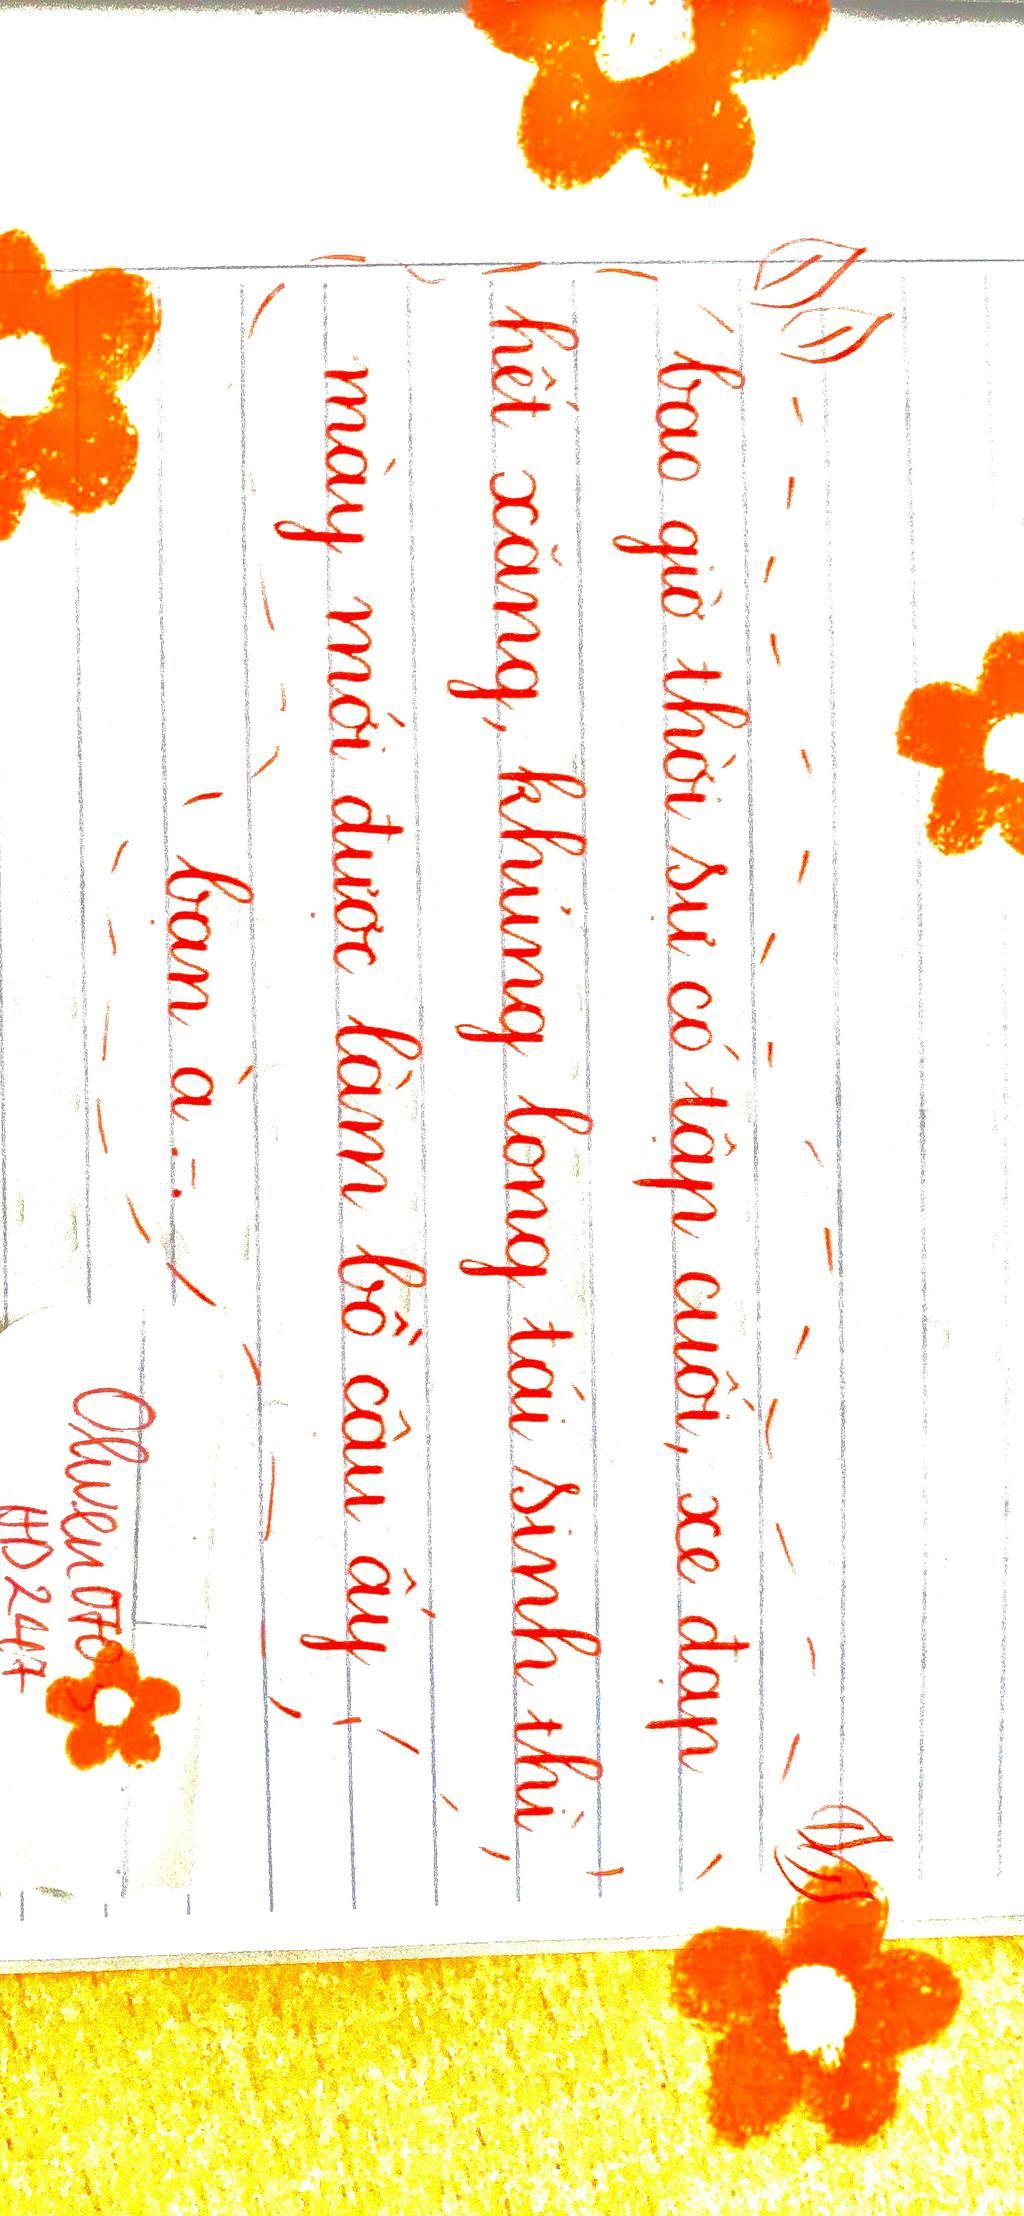 bao giờ thời sự có tập cuối, xe đạp
hết xăng, khủng long tái sinh thì
mày mới được làm bố cậu ấy
bạn ạ :-.
HD2447